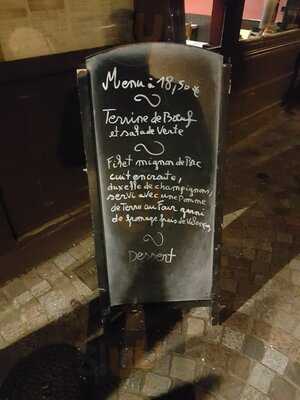 Menu à 18,50€
Terrine de Bœuf
et salade verte
Filet mignon de Porc
cuit en croute,
duxelle de champignons,
servi avec une Pomme
de Terre au Four garni
de fromage frais de
Dessert